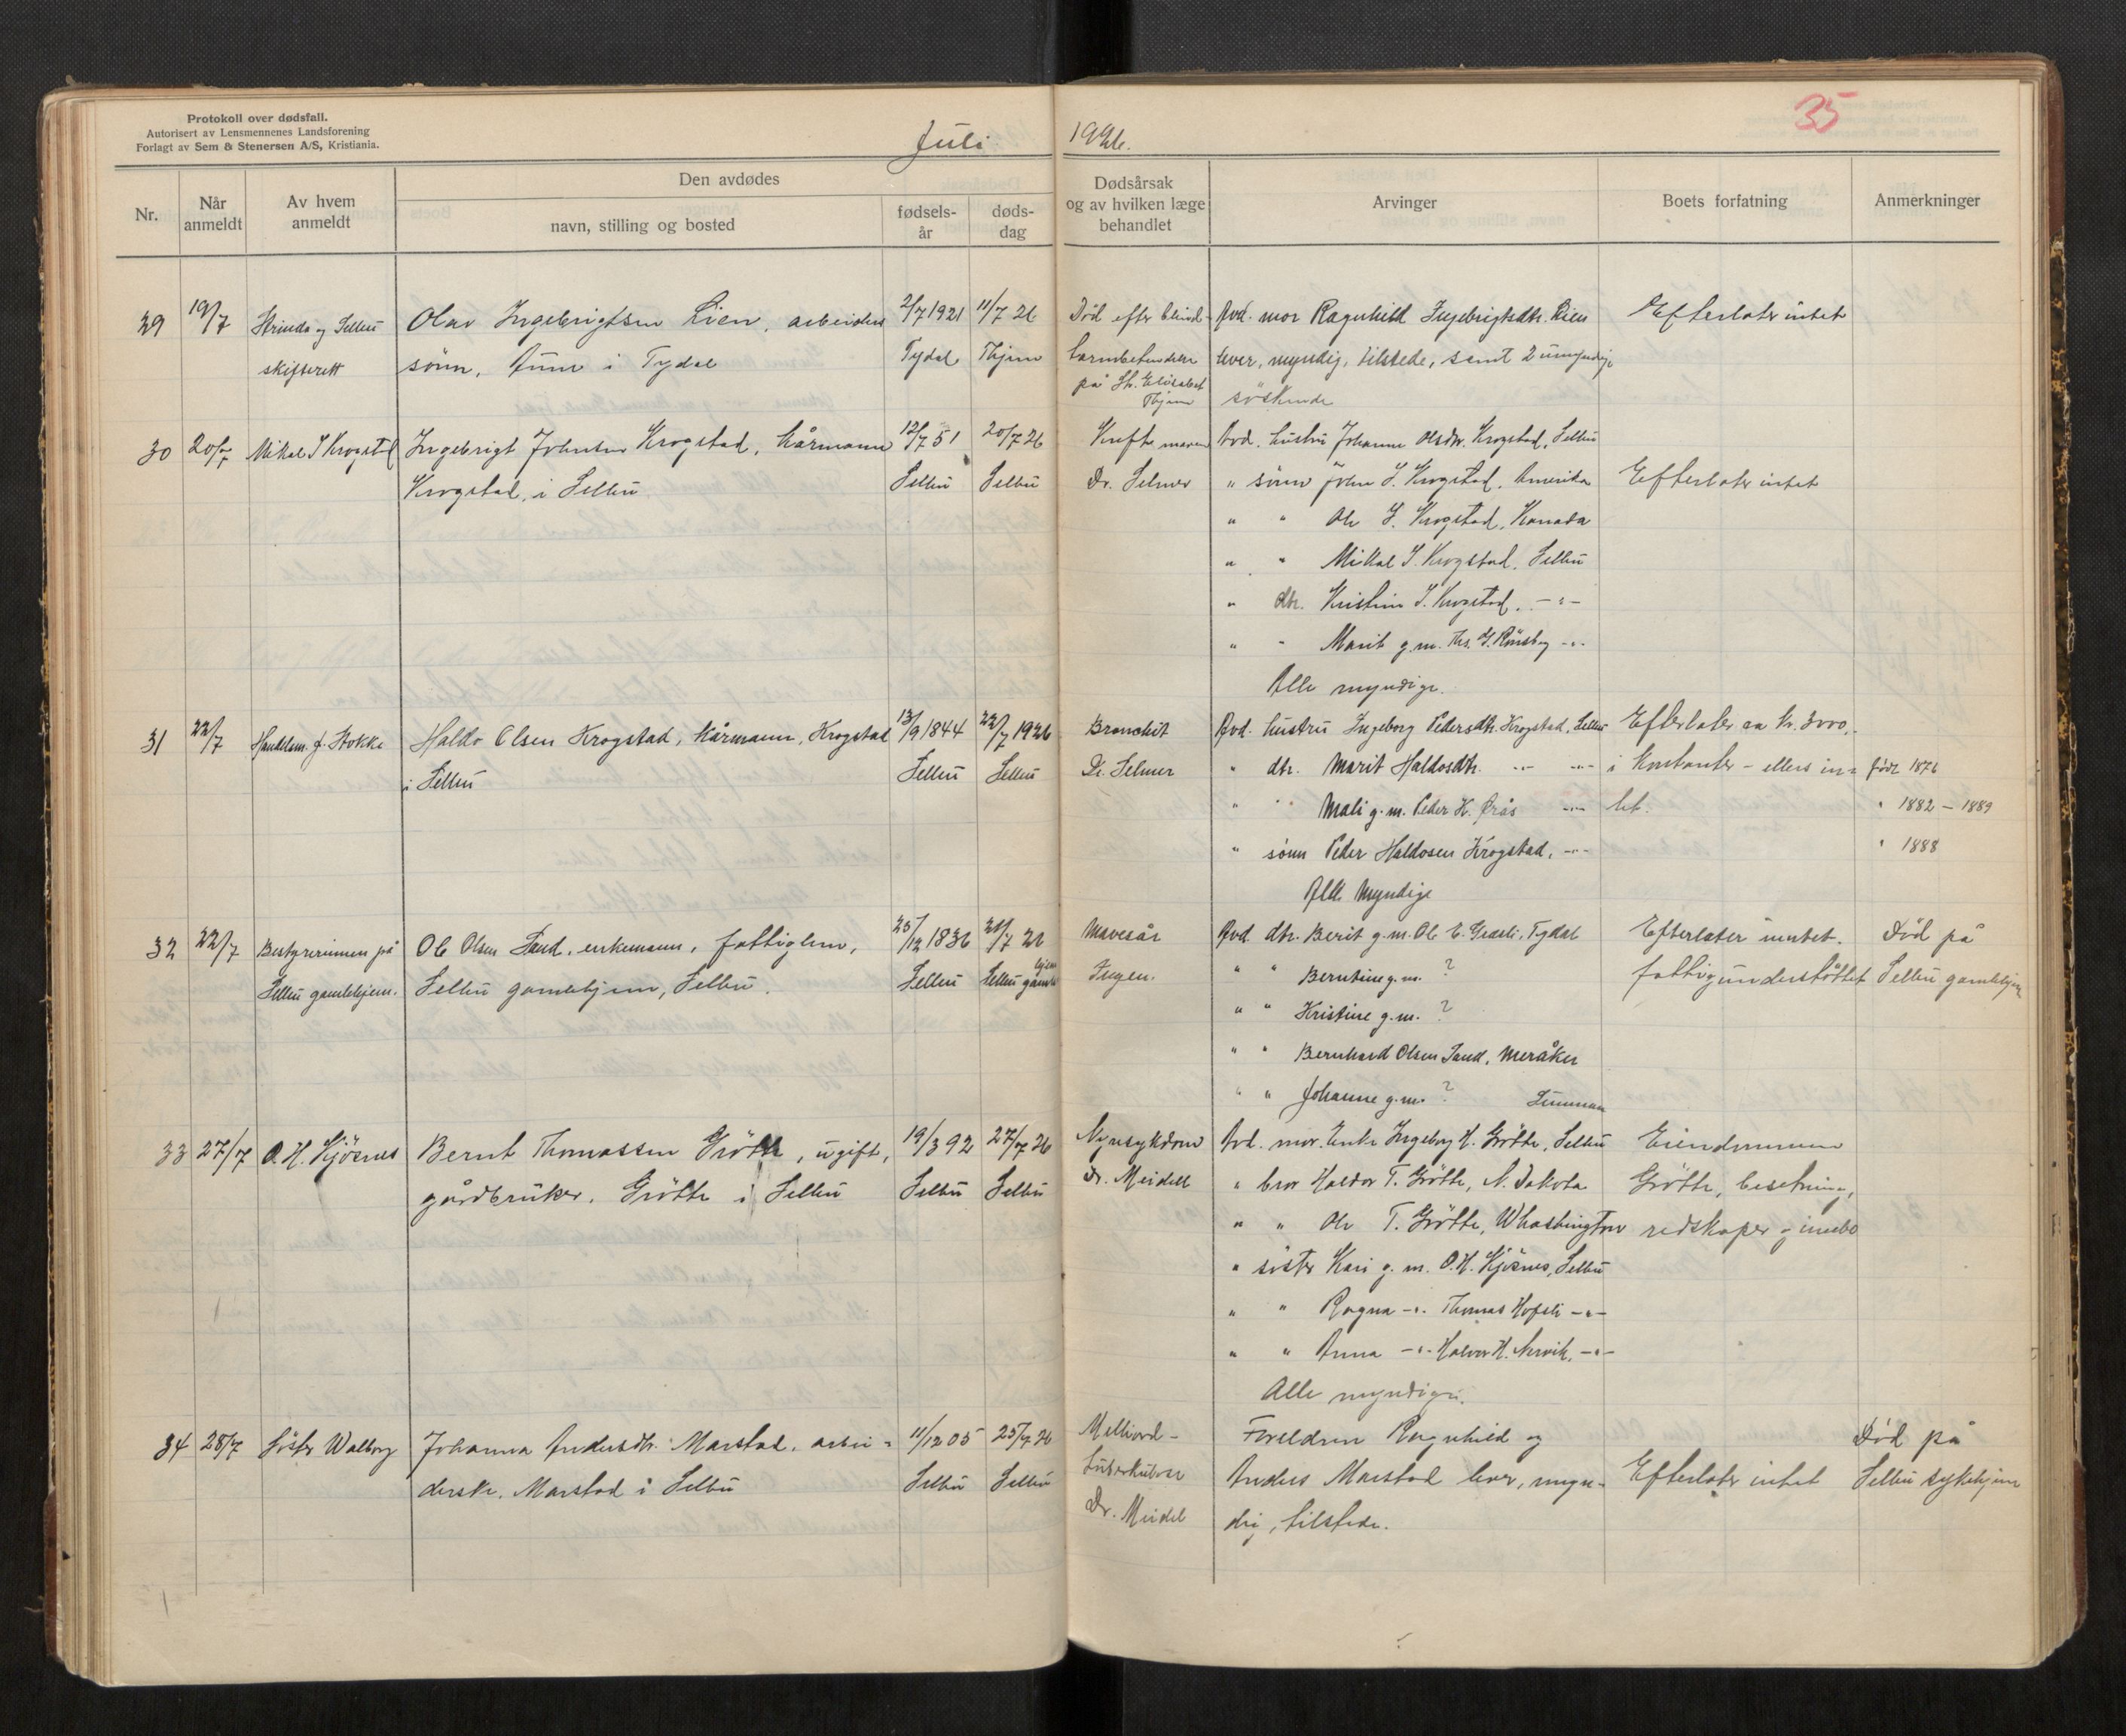 Protokoll over dødsfall.
Autorisert av Lensmennenes Landsforening
Forlagt av Sem & Stenersen A/S, Kristiania.
Juli 1926.
35
Nr.
Når anmeldt
Av hvem anmeldt
Den avdødes
navn, stilling og bosted
fødsels-år
døds-dag
Dødsårsak
og av hvilken læge
behandlet
Arvinger
Boets forfatning
Anmerkninger
29 19/7 Strinda og Selbu Olav Ingebrigtsen Lien, arbeiders 2/7 1921 11/7 26 Død efter blind- Avd. mor Ragnhild Ingebrigtsdtr. Lien Efterlater intet
skifterett sønn, Aune i Tydal Tydal Thjem lever, myndig, tilstede, samt 2 umyndige
på St. Elisabet
Thjem søskende
30 20/7 Mikal I Krogstad Ingebrigt Johnsen Krogstad, kårmann 12/7 51 20/7 26 Kreft i maven Avd. hustru Johanne Olsdtr. Krogstad, Selbu
Krogstad, i Selbu Selbu Selbu Dr. Selmer " sønn John I. Krogstad, Amerika Efterlater intet
" " Ole I. Krogstad, Kanada
" " Mikal I. Krogstad, Selbu
" dtr. Kristine I. Krogstad, -"-
" " Marit g.m. Ths. J. Rønsberg -"-
Alle myndige.
31 22/7 Handelsm. J. Stokke Haldo Olsen Krogstad, kårmann, Krogstad 13/9 1844 22/7 1926 Bronchit Avd. hustru Ingeborg Pedersdtr. Krogstad, Selbu Efterlater ca kr. 3000,-
i Selbu Selbu Selbu Dr. Selmer " dtr. Marit Haldosdtr. -"- -"- i kontanter - ellers in- født 1876
" " Mali g.m. Peder H. Ørås -"- tet. " 1882 - 1889
" sønn Peder Haldosen Krogstad, -"- " 1888
Alle myndige
32 22/7 Bestyrerinnen på Ole Olsen Sand, enkemann, fattiglem, 25/12 1836 21/7 26 Mavesår Avd. dtr. Berit g.m. Ole E. Græsli, Tydal Efterlater intet. Død på
Selbu gamlehjem. Selbu gamlehjem, Selbu. Selbu Selbu gamlehjem Ingen. " " Berntine g.m. ? fattigunderstøttet Selbu gamlehjem
" " Kristine g.m. ?
" " Bernhard Olsen Sand, Meråker
" " Johanne g.m. ?
33 27/7 O. H. Kjösnes Bernt Thomassen Grötte, ugift, 19/3 92 27/7 26 Nyresykdom Avd. mor. Enke Ingeborg H. Grötte, Selbu Eiendommen
gårdbruker, Grötte i Selbu Selbu Selbu Dr. Meidell " bror Haldor T. Grötte, N. Dakota Grötte, besetning,
" " Ole T. Grötte, Whashington redskaper og innbo
" søster Kari g. m. O. H. Kjösnes, Selbu
" " Ragna -"- Thomas Hofsli -"-
" " Anna -"- Halvor H. Nervik, -"-
Alle myndige.
34 28/7 Söster Walborg Johanna Andersdtr. Marstad, arbei- 11/12 05 25/7 26 Milliard- Foreldrene Ragnhild og Død på
derske, Marstad i Selbu Selbu Selbu tuberkulose Anders Marstad lever, myn- Efterlater intet Selbu sykehjem
Dr. Meidel dig, tilstede.